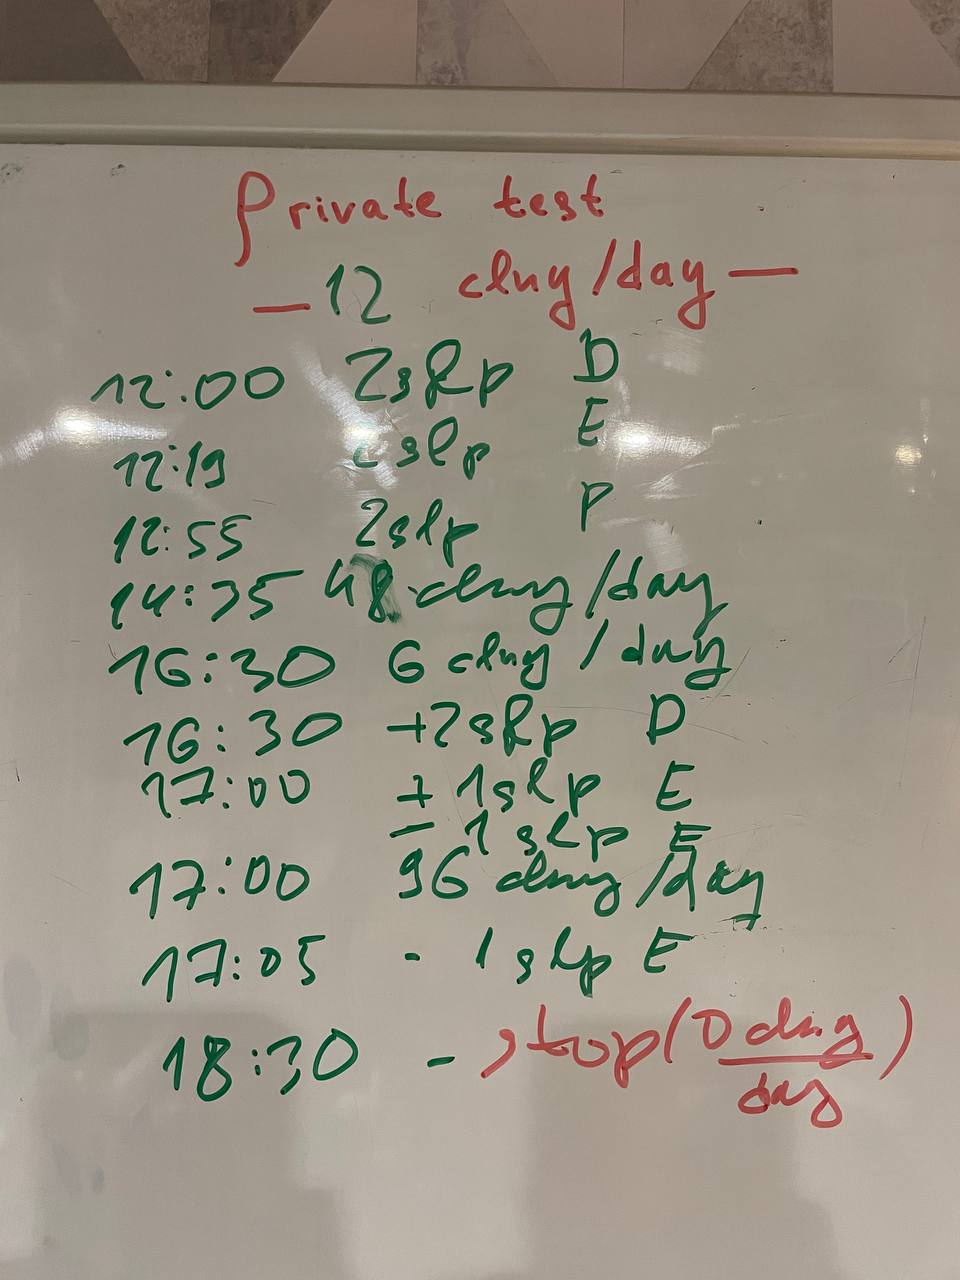 Private test
— 12 clny/day —
12:00 2slp D
12:19 2slp E
12:55 2slp P
14:35 48 clny/day
16:30 6 clny/day
16:30 +2slp D
17:00 +1slp E
- 1slp E
17:00 96 clny/day
17:05 - 1slp E
18:30 - stop (0 clny/day)